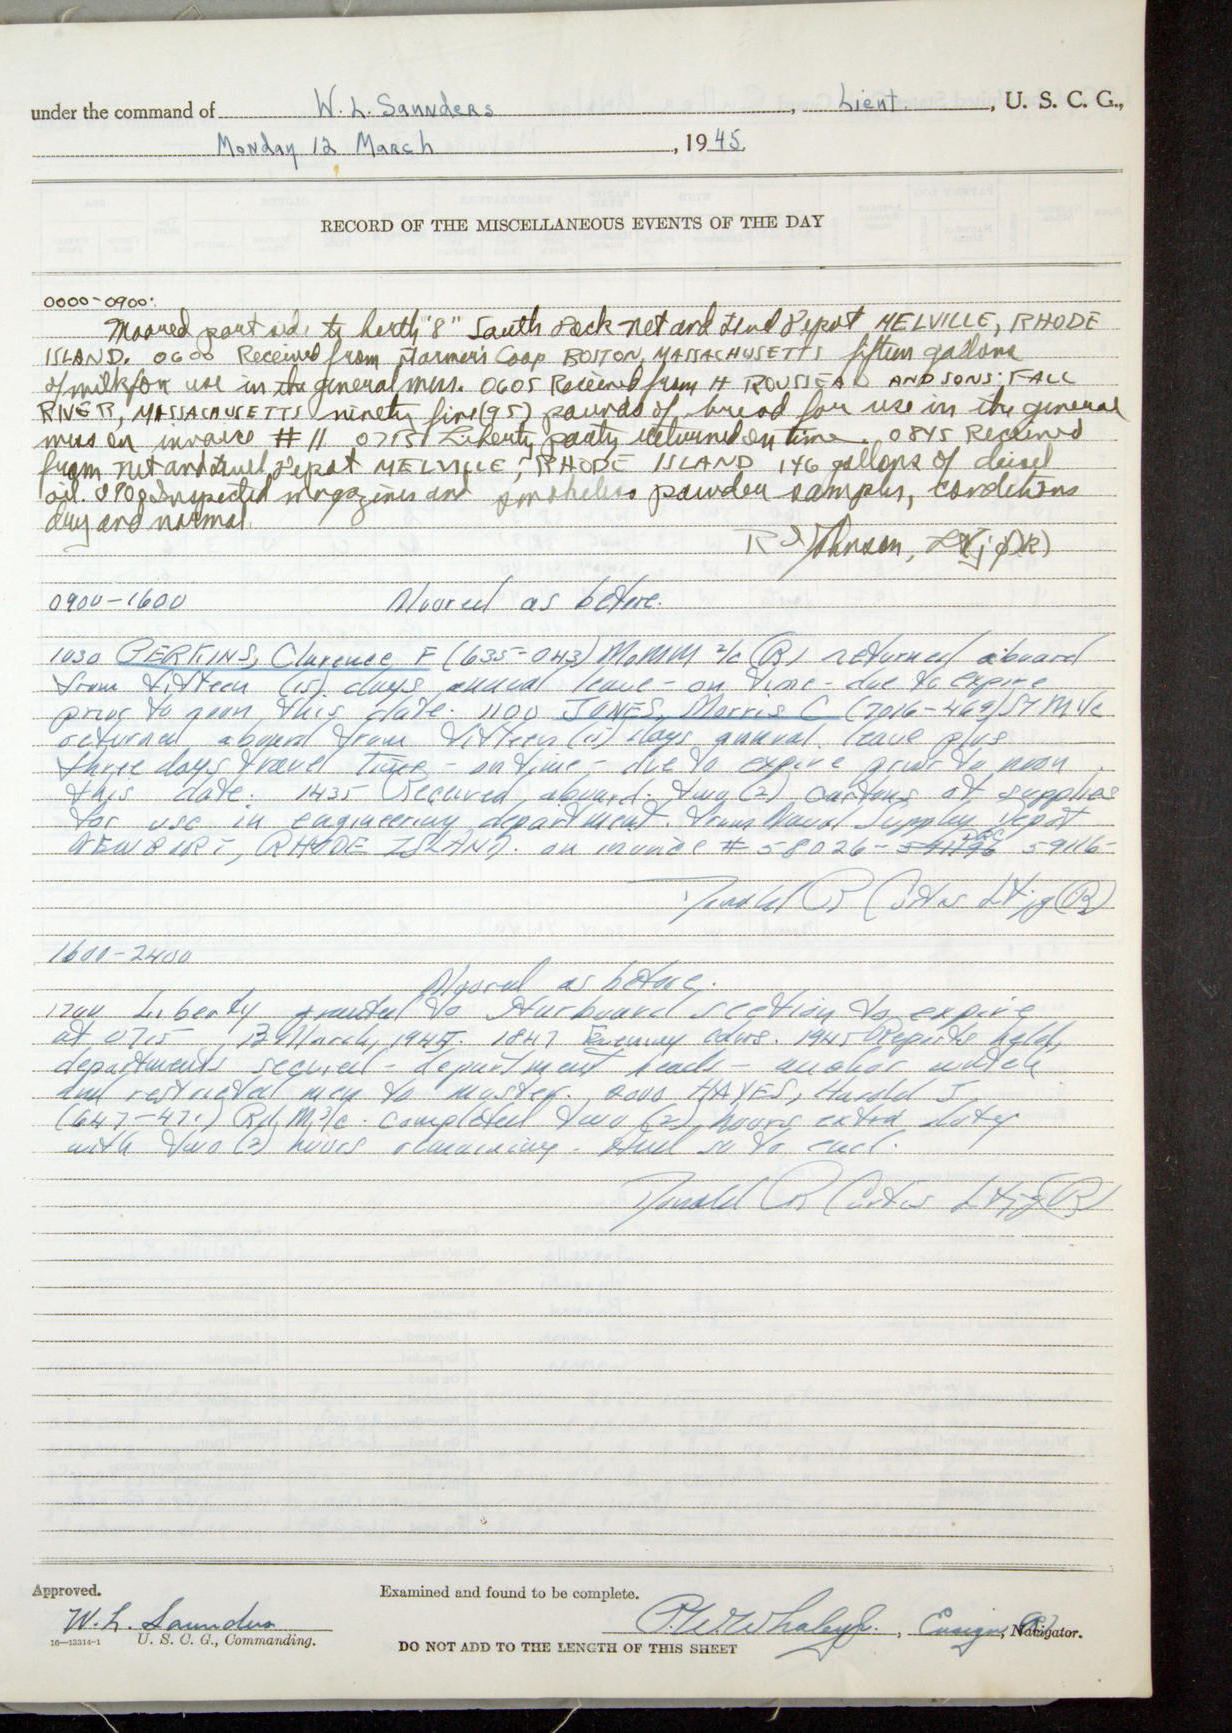 under the command of W. L. Saunders, Lieut, U. S. C. G.,
Monday 12 March, 1945.
RECORD OF THE MISCELLANEOUS EVENTS OF THE DAY
0000-0900:
Moored port side to berth "8" South Dock-net and fuel Depot, MELVILLE, RHODE
ISLAND. 0600 Received from Farmer's Coop BOSTON, MASSACHUSETTS fifteen gallons
of milk for use in the general mess. 0605 Received from H ROUSSEAU AND SONS; FALL
RIVER, MASSACHUSETTS ninety five (95) pounds of bread for use in the general
mess on invoice #11 0715 Liberty party returned on time. 0845 Received
from net and fuel Depot MELVILLE, RHODE ISLAND 146 gallons of diesel
oil. 0900 Inspected magazines and smokeless powder samples, conditions
dry and normal.
R Johnson, Lt(jg)(R)
0900-1600 Moored as before.
1030 PERKINS, Clarence F (635-043) MoMM 2/c (R) returned aboard
from fifteen (15) days annual leave - on time - due to expire
prior to noon this date. 1100 JONES, Morris C (7016-469) StM1/c
returned aboard from fifteen (15) days annual leave plus
three days travel time - on time - due to expire prior to noon
this date. 1435 Received aboard two (2) cartons of supplies
for use in engineering department from Naval Supply Depot
NEWPORT, RHODE ISLAND. on invoice # 58026- 59116-
Donald R Curtis Lt(jg)(R)
1600-2400
Moored as before.
1700 Liberty granted to starboard section to expire
at 0715 13 March, 1945. 1847 Evening colors. 1945 Reports held,
departments secured - department heads - anchor watch
and restricted men to muster. 2000 HAYES, Harold J.
(647-471) RdM3/c. completed two (2) hours extra duty
with two (2) hours remaining. And so to end.
Donald R Curtis Lt(jg)(R)
Approved.
Examined and found to be complete.
W. L. Saunders
P. W. Whaley Jr., Ensign (R), Navigator.
16—13314-1 U. S. C. G., Commanding.
DO NOT ADD TO THE LENGTH OF THIS SHEET